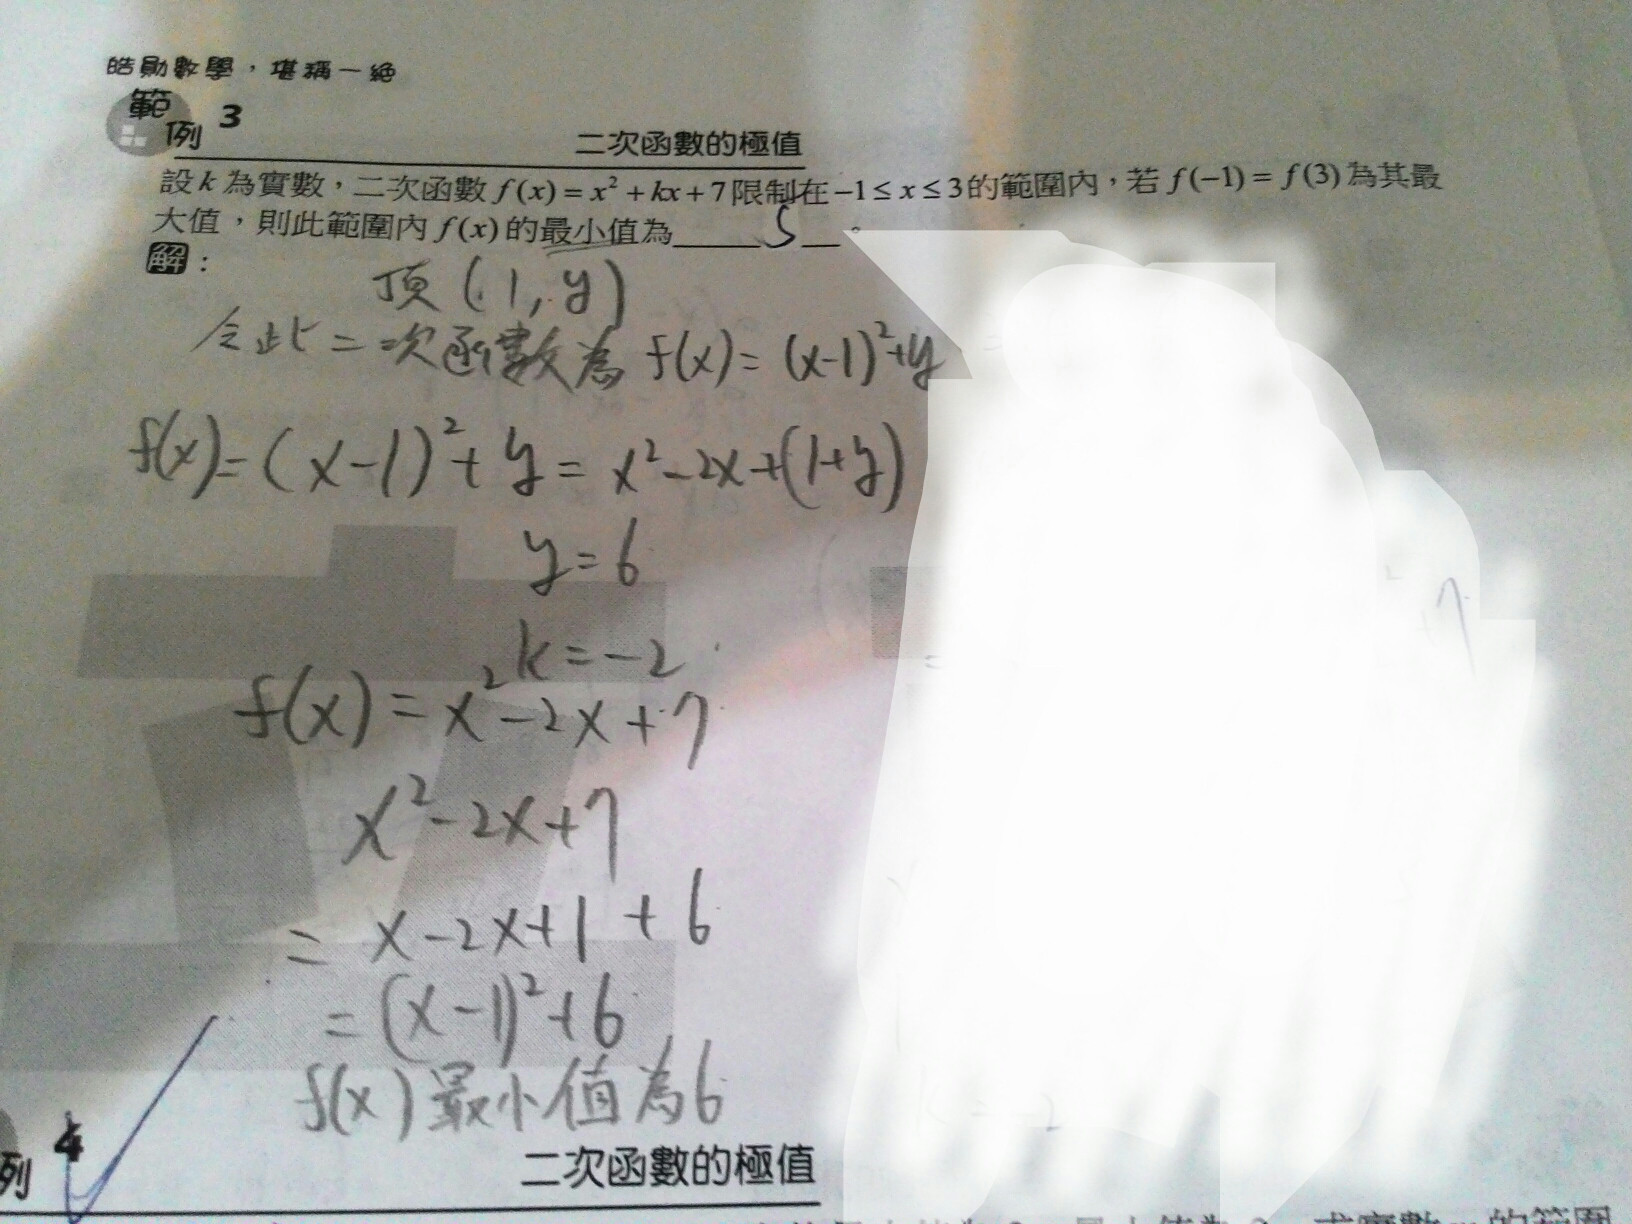 皓勛數學，堪稱一絕
範例 3
二次函數的極值
設k為實數，二次函數f(x)=x²+kx+7限制在-1≤x≤3的範圍內，若f(-1)=f(3)為其最
大值，則此範圍內f(x)的最小值為_____5__。
解：
頂(1,y)
令此二次函數為f(x)=(x-1)²+y
f(x)=(x-1)²+y=x²-2x+(1+y)
y=6
k=-2
f(x)=x²-2x+7
x²-2x+7
=x-2x+1+6
=(x-1)²+6
f(x)最小值為6
列 4
二次函數的極值